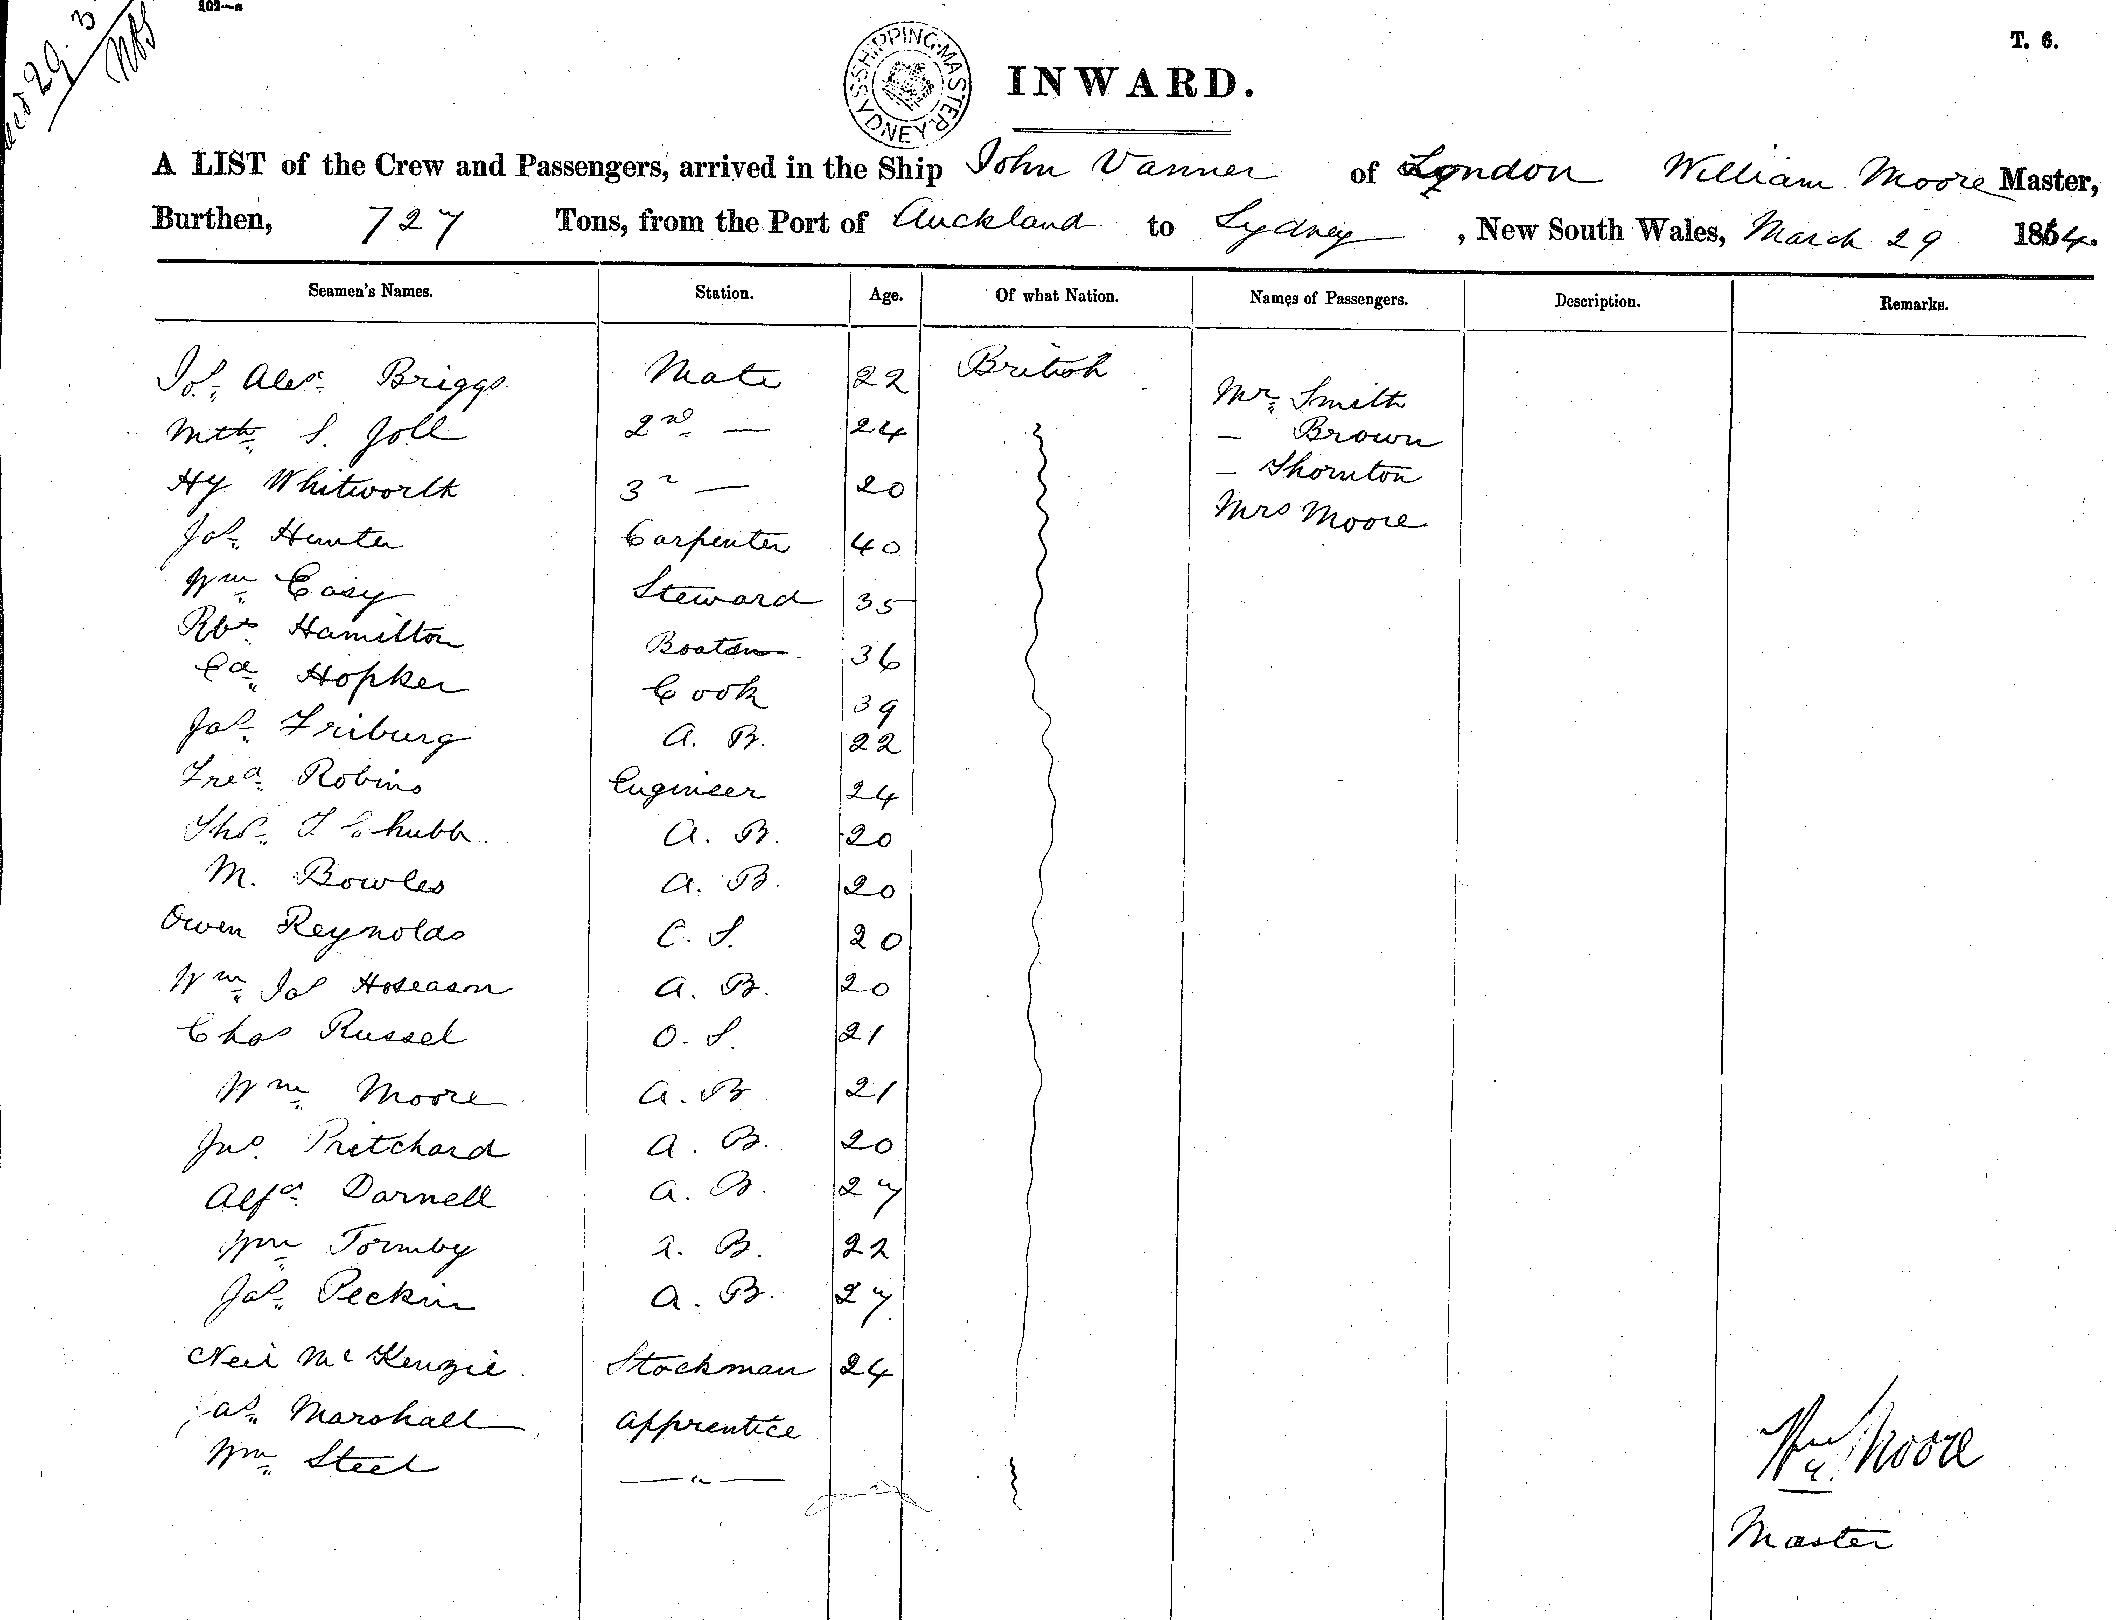 102—a
T. 6.
29. 3
SHIPPING MASTER SYDNEY
INWARD.
A LIST of the Crew and Passengers, arrived in the Ship John Vanner of London William Moore Master,
Burthen, 727 Tons, from the Port of Auckland to Sydney, New South Wales, March 29 1864.
Seamen's Names. Station. Age. Of what Nation. Names of Passengers. Description. Remarks.
Jos. Alexr. Briggs Mate 22 British Mr. Smith
Mtth. S. Joll 2nd — 24 — Brown
Hy Whitworth 3r — 20 — Thornton
Jas. Hunter Carpenter 40 Mrs Moore
Wm Easy Steward 35
Rbt. Hamilton Boatsn 36
Ed. Hopker Cook 39
Jas. Friburg A. B. 22
Fred. Robins Engineer 24
Thos. T Chubb A. B. 20
M. Bowles A. B. 20
Owen Reynolds O. S. 20
Wm. Jas Hoseason A. B. 20
Chas Russel O. S. 21
Wm. Moore A. B 21
Jno. Pritchard A. B. 20
Alfd. Darnell A. B. 27
Wm Formby A. B. 22
Jas. Peckin A. B. 27
Neil McKenzie Stockman 24
Jas. Marshall Apprentice
Wm. Steel — " —
Wm. Moore
Master